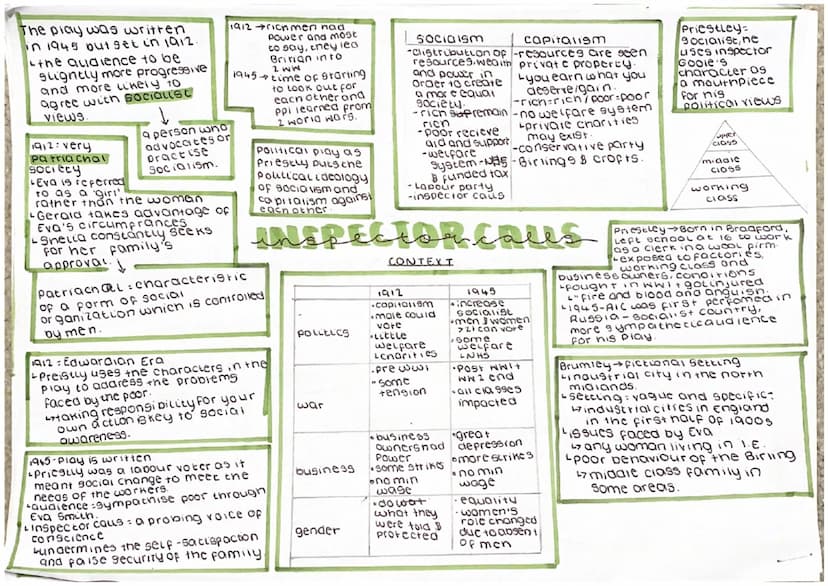 The play was written
in 1945 but set in 1912.
↳ the audience to be
slightly more progressive
and more likely to
agree with socialist
views.
a person who
advocates or
practise
socialism.
1912: very
Patriachal
society
↳ Eva is referred
to as a 'girl'
rather than the woman
↳ Gerald takes advantage of
Eva's circumfrances
↳ Sheila constantly seeks
for her family's
approval.
Patriachal = characteristic
of a form of social
organization which is controlled
by men.
1912 = Edwardian Era
↳ Preistly uses the characters in the
play to address the problems
faced by the poor.
↳ taking responsibility for your
own action is key to social
awareness.
1945 - Play is written
↳ Priestly was a labour voter as it
meant social change to meet the
needs of the workers.
↳ audience = sympathise poor through
Eva Smith.
↳ Inspector calls = a probing voice of
conscience
↳ undermines the self-satisfaction
and false security of the family.
1912 → rich men had
power and most
to say, they led
Britian into
2 WW
1945 → time of starting
to look out for
each other and
ppl learned from
2 world wars.
Political play as
Priestly puts the
political ideology
of socialism and
capitalism against
each other.
socialism
-distribution of
resources, wealth
and power in
order to create
a more equal
society.
- rich remain
rich
- poor recieve
aid and support
- welfare
system → NHS
& funded tax
- Labour party
- inspector calls
capitalism
- resources are seen
private property.
↳ you earn what you
deserve/gain.
- rich = rich / poor = poor
- no welfare system
↳ private charities
may exist.
- conservative party
- Birlings & crofts.
Priestley =
socialise, he
uses inspector
Goole's
character as
a mouthpiece
for his
political views
upper
class
middle
class
working
class
INSPECTOR CALLS
CONTEXT
1912 1945
politics
• capitalism
• male could
vote
• little
welfare
↳ charities
• increase
socialist
• men & women
> 21 can vote
• some
welfare
↳ NHS
war
• pre WW1
• some
tension
• Post WW1 +
WW2 end
• all classes
impacted
business
• business
owners had
power
• some strikes
• no min
wage
• great
depression
• more strikes
• no min
wage
gender
• do what
what they
were told &
protected
• equality
• women's
role changed
due to absent
of men
Priestley → Born in Bradford,
left school at 16 to work
as a clerk in a wool firm.
↳ exposed to factories,
working class and
business owners, conditions
↳ fought in WW1 + got injured
↳ fire and blood and anguish.
↳ 1945 - AIC was first perfomed in
Russia → socialist country,
more sympathetic audience
for his play.
Brumley → fictional setting
↳ industrial city in the north
midlands.
↳ setting = vague and specific:
↳ industrial cities in england
in the first half of 1900s
↳ issues faced by Eva
↳ any woman living in I.E.
↳ poor behaviour of the Birling
↳ middle class family in
some areas.